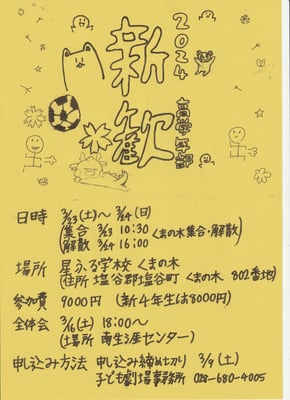 2024
新歓
高学年部
日時 3/23(土)～3/24(日)
(集合 3/23 10:30 くまの木集合・解散)
(解散 3/24 16:00
場所 星ふる学校 くまの木
(住所 塩谷郡塩谷町 くまの木 802番地)
参加費 9000円 (新4年生は8000円)
全体会 3/16(土) 18:00～
(場所 南生涯センター)
申し込み方法 申し込み締め切り 3/9(土)
子ども劇場事務所 028-680-4005